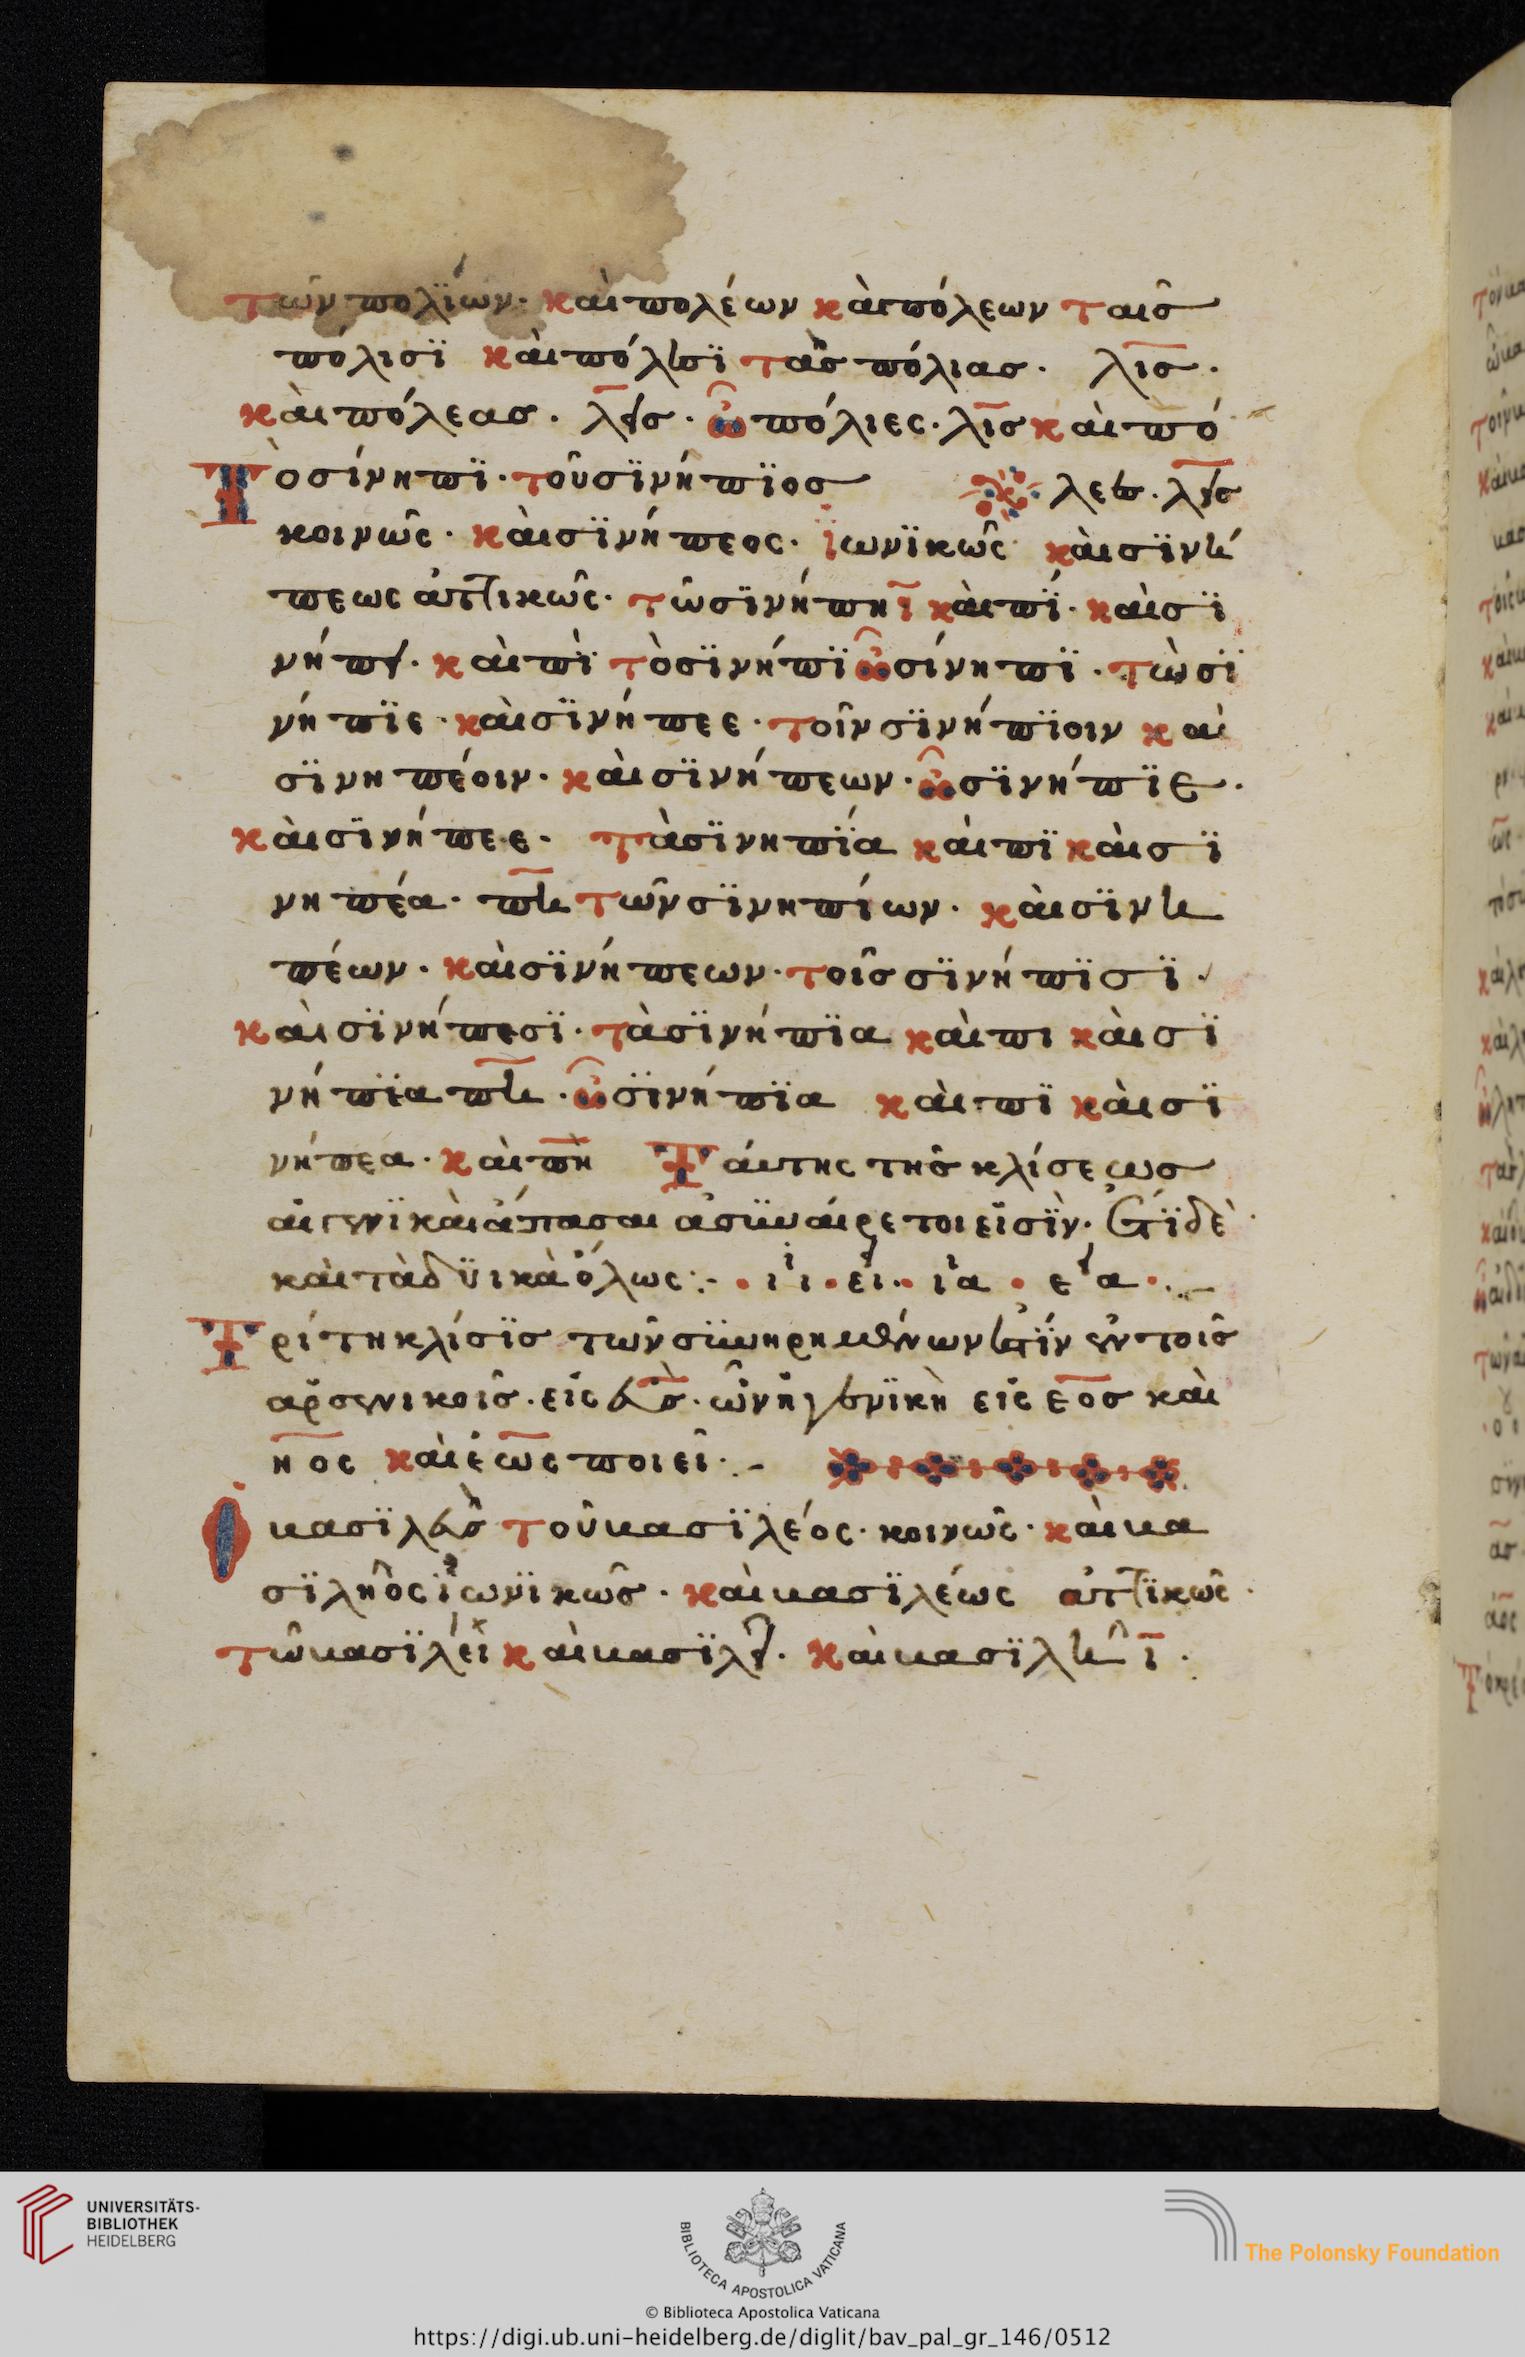 τῶν πολΐων· καὶ πολέων καὶ πόλεων ταῖσ
πόλισϊ καὶ πόλεσϊ τὰσ πόλιασ· λισ·
καὶ πόλεασ· λεισ· ὦ πόλιες· λισ καὶ πό
Τὸ σίνηπϊ· τοῦ σϊνήπϊοσ λεεσ· λεισ
κοινῶς· καὶ σϊνήπεος· ϊωνϊκῶς καὶ σϊνή
πεως ἀττικῶς· τῶ σϊνήπηϊ καὶ πϊ· καὶ σϊ
νήπει· καὶ πϊ τὸ σϊνήπϊ ὦ σίνηπϊ· τὼ σϊ
νήπϊε· καὶ σϊνήπεε· τοῖν σϊνήπϊοιν καὶ
σϊνηπέοιν· καὶ σϊνήπεων· ὦ σϊνήπϊε·
καὶ σϊνήπεε· τὰ σϊνηπΐα καὶ πϊ καὶ σϊ
νηπέα· πη τῶν σϊνηπίων· καὶ σϊνη
πέων· καὶ σϊνήπεων· τοῖσ σϊνήπϊσϊ·
καὶ σϊνήπεσϊ· τὰ σϊνήπϊα καὶ πι καὶ σϊ
νήπϊα πη· ὦ σϊνήπϊα καὶ πϊ καὶ σϊ
νήπεα· καὶ πὴ Ταύτης τῆσ κλίσεωσ
αἱ ενϊκαὶ ἅπασαι ἀσϋναίρετοι εἰσϊν· ἔτϊ δὲ
καὶ τὰ δϋικὰ ὅλως :- · ιϊ · εϊ · ια · εια ·
Τρίτη κλίσϊσ τῶν σϋνηρημένων ἐστϊν ἐν τοῖσ
ἀρσενικοῖσ· εἰς εὺσ· ὧν ἡ γενϊκὴ εἰς εοσ καὶ
ηος καὶ έως ποιεῖ·
Ὁ βασϊλεὺσ τοῦ βασϊλέος· κοινῶς· καὶ βα
σϊλῆος ϊωνϊκῶσ· καὶ βασϊλέως ἀττϊκῶς·
τῶ βασϊλέϊ καὶ βασϊλεῖ· καὶ βασϊλῆϊ·
UNIVERSITÄTS-
BIBLIOTHEK
HEIDELBERG
BIBLIOTECA APOSTOLICA VATICANA
The Polonsky Foundation
© Biblioteca Apostolica Vaticana
https://digi.ub.uni-heidelberg.de/diglit/bav_pal_gr_146/0512